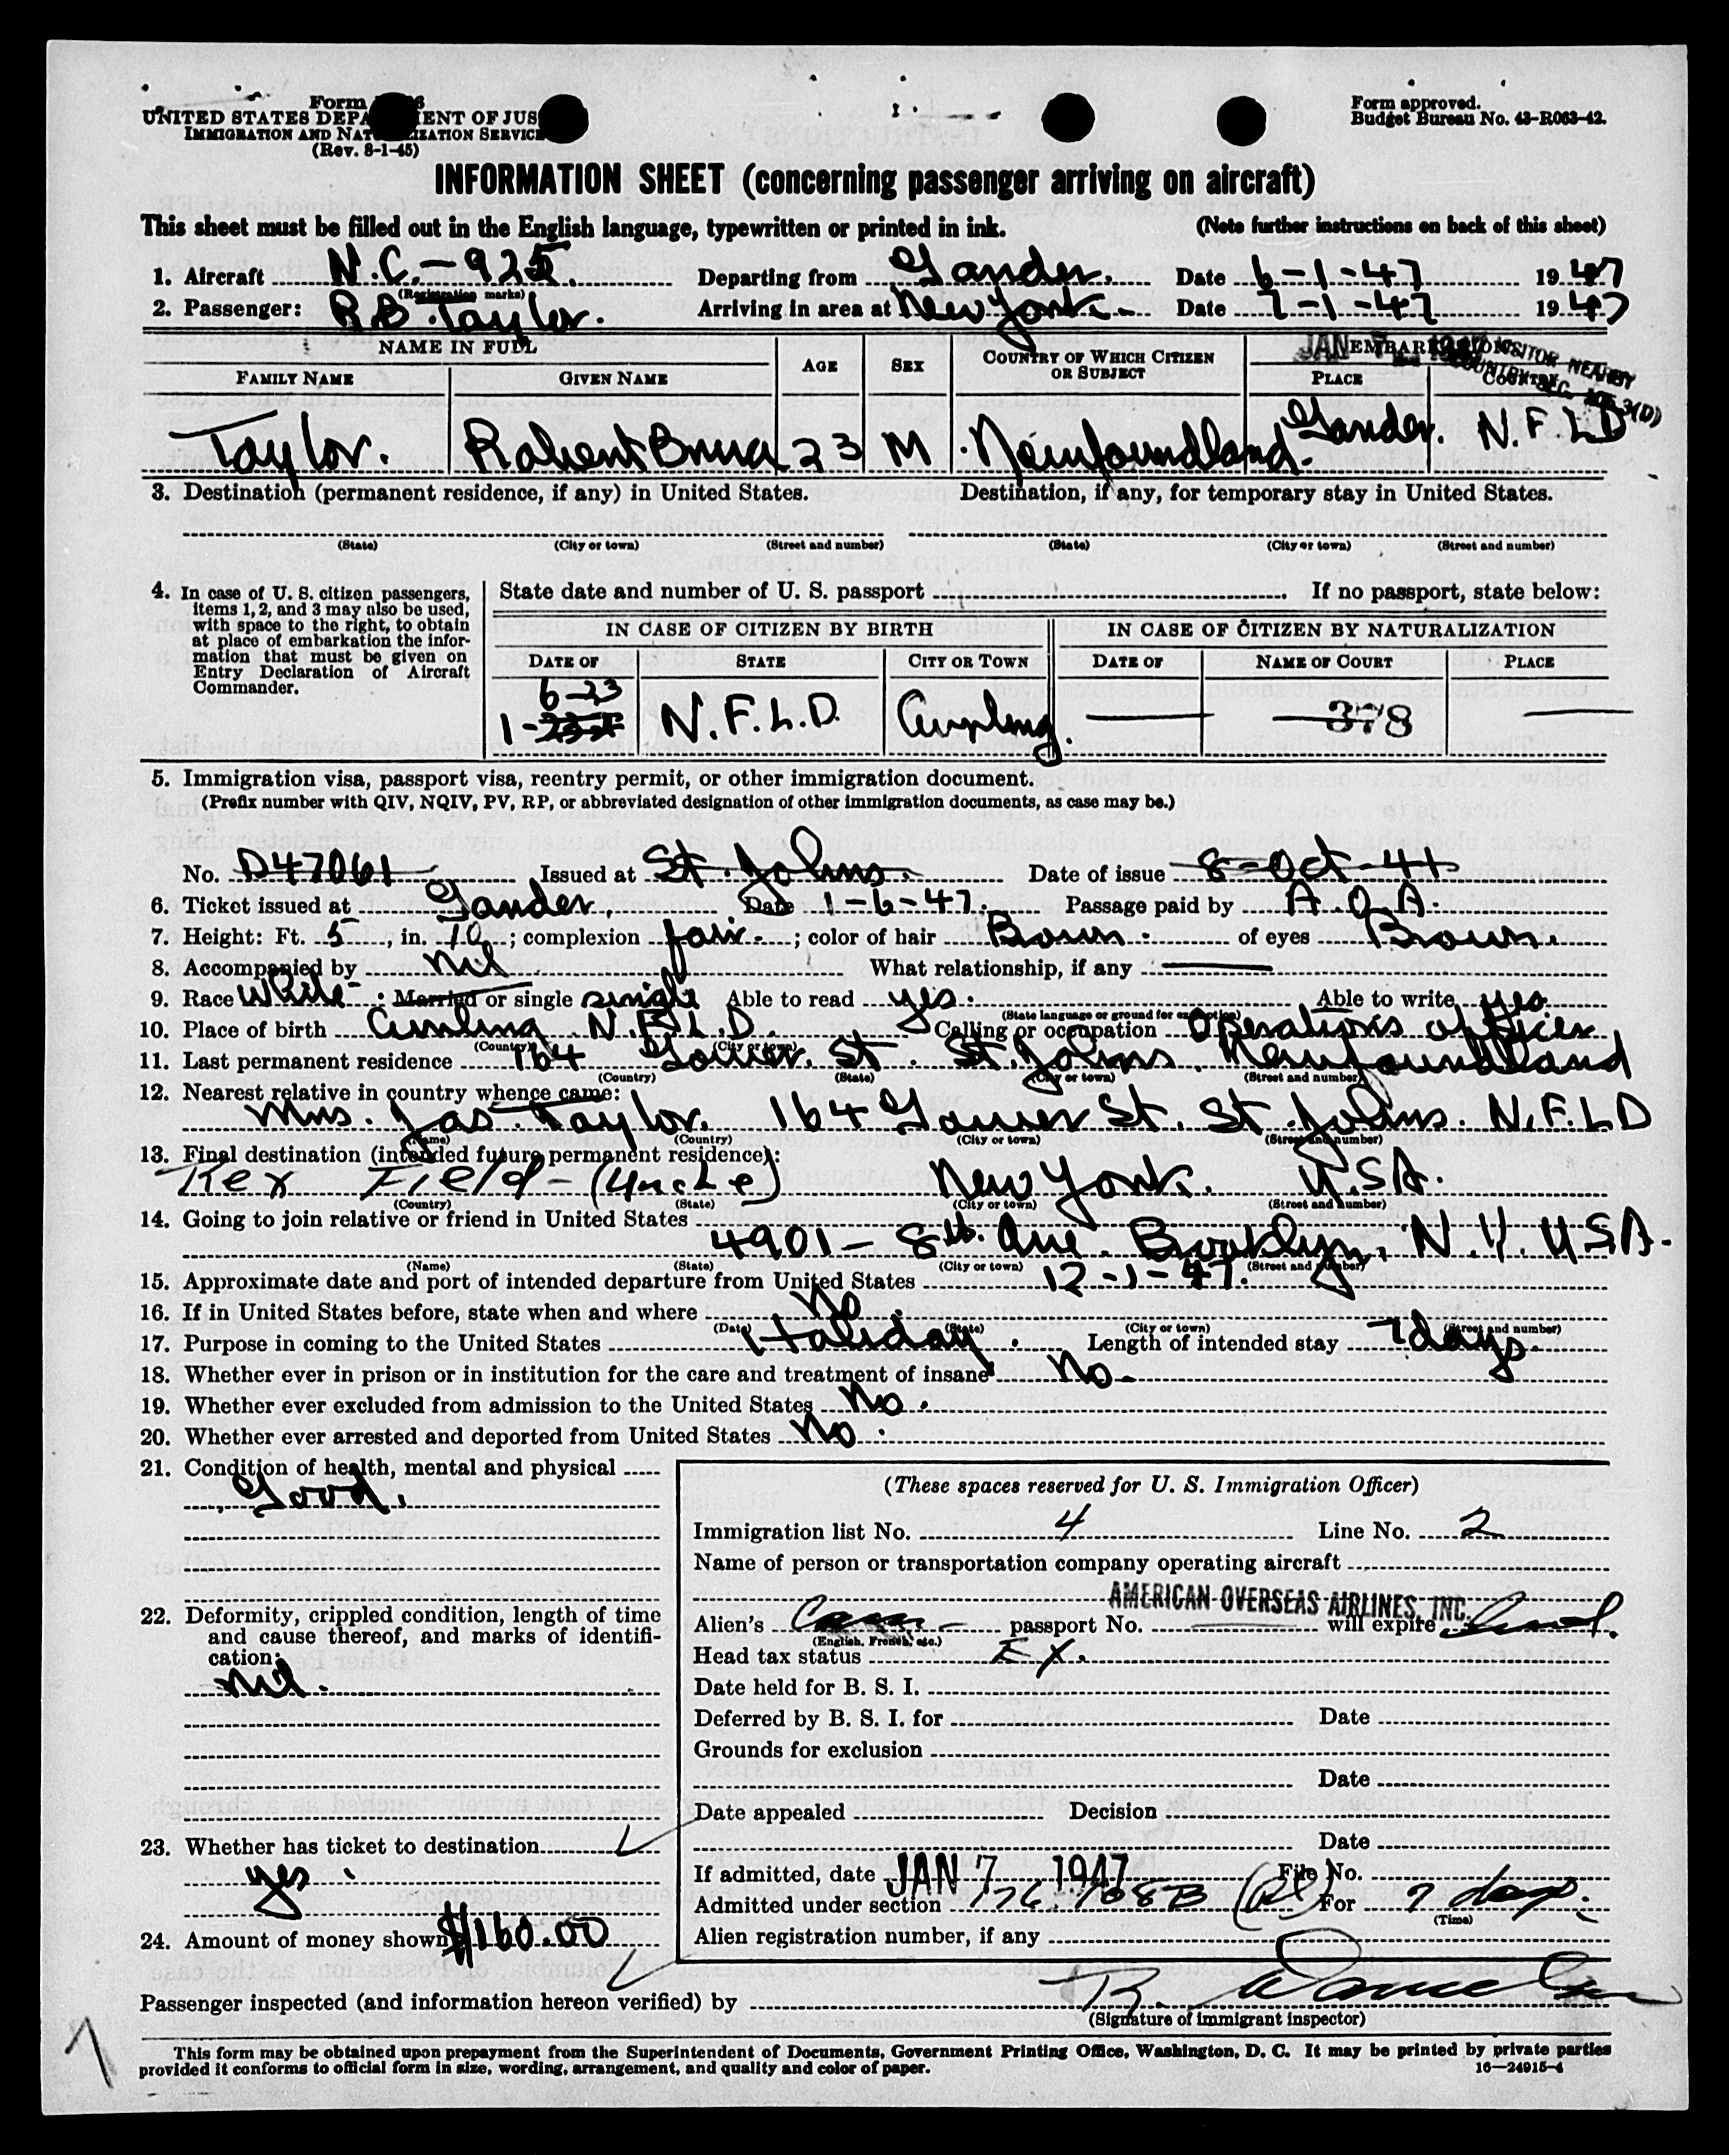 Form
UNITED STATES DEPA ENT OF JUS
IMMIGRATION AND NAT IZATION SERVICE
(Rev. 8-1-45)
Form approved.
Budget Bureau No. 43-R063-42.
INFORMATION SHEET (concerning passenger arriving on aircraft)
This sheet must be filled out in the English language, typewritten or printed in ink. (Note further instructions on back of this sheet)
1. Aircraft N.C.-925. Departing from Gander. Date 6-1-47 1947
(Registration marks)
2. Passenger: R.B. Taylor. Arriving in area at New York Date 7-1-47 1947
NAME IN FULL AGE SEX COUNTRY OF WHICH CITIZEN OR SUBJECT EMBARKATION
JAN 7 1947 VISITOR NEARBY
COUNTRY SEC. 3(D)
FAMILY NAME GIVEN NAME PLACE COUNTRY
Taylor. Robert Bruce 23 M Newfoundland. Gander. N.F.L.D
3. Destination (permanent residence, if any) in United States. Destination, if any, for temporary stay in United States.
(State) (City or town) (Street and number) (State) (City or town) (Street and number)
4. In case of U. S. citizen passengers, items 1, 2, and 3 may also be used, with space to the right, to obtain at place of embarkation the information that must be given on Entry Declaration of Aircraft Commander.
State date and number of U. S. passport If no passport, state below:
IN CASE OF CITIZEN BY BIRTH IN CASE OF CITIZEN BY NATURALIZATION
DATE OF STATE CITY OR TOWN DATE OF NAME OF COURT PLACE
6-23
1- N.F.L.D. Curling. 378
5. Immigration visa, passport visa, reentry permit, or other immigration document.
(Prefix number with QIV, NQIV, PV, RP, or abbreviated designation of other immigration documents, as case may be.)
No. D47061 Issued at St. Johns. Date of issue 8-Oct-41
6. Ticket issued at Gander. Date 1-6-47. Passage paid by A.O.A.
7. Height: Ft. 5, in. 10; complexion fair.; color of hair Brown. of eyes Brown.
8. Accompanied by nil What relationship, if any
9. Race White; Married or single single Able to read yes. Able to write yes.
(State language or ground for exemption)
10. Place of birth Curling N.F.L.D. Calling or occupation Operations officer
(Country) (City or town)
11. Last permanent residence 164 Gower St. St. Johns. Newfoundland
(Country) (State) (City or town) (Street and number)
12. Nearest relative in country whence came:
Mrs. Jas. Taylor. 164 Gower St. St. Johns. N.F.L.D
(Name) (Country) (City or town) (Street and number)
13. Final destination (intended future permanent residence):
Rex Field - (Uncle) New York. U.S.A.
(Country) (State) (City or town) (Street and number)
14. Going to join relative or friend in United States
4901 - 8th. Ave. Brooklyn, N.Y. U.S.A.
(Name) (State) (City or town) (Street and number)
15. Approximate date and port of intended departure from United States 12-1-47.
16. If in United States before, state when and where No.
(Date) (State) (City or town) (Street and number)
17. Purpose in coming to the United States Holiday. Length of intended stay 7 days.
18. Whether ever in prison or in institution for the care and treatment of insane No.
19. Whether ever excluded from admission to the United States No.
20. Whether ever arrested and deported from United States No.
21. Condition of health, mental and physical
Good.
(These spaces reserved for U. S. Immigration Officer)
Immigration list No. 4 Line No. 2
Name of person or transportation company operating aircraft
AMERICAN OVERSEAS AIRLINES, INC.
22. Deformity, crippled condition, length of time and cause thereof, and marks of identification:
nil.
Alien's passport No. will expire
(English, French, etc.)
Head tax status EX.
Date held for B. S. I.
Deferred by B. S. I. for Date
Grounds for exclusion
Date
Date appealed Decision
23. Whether has ticket to destination
yes
Date
If admitted, date JAN 7 1947 File No.
Admitted under section For 7 days.
(Time)
24. Amount of money shown $160.00
Alien registration number, if any
Passenger inspected (and information hereon verified) by
(Signature of immigrant inspector)
This form may be obtained upon prepayment from the Superintendent of Documents, Government Printing Office, Washington, D. C. It may be printed by private parties
provided it conforms to official form in size, wording, arrangement, and quality and color of paper. 16—24915-4